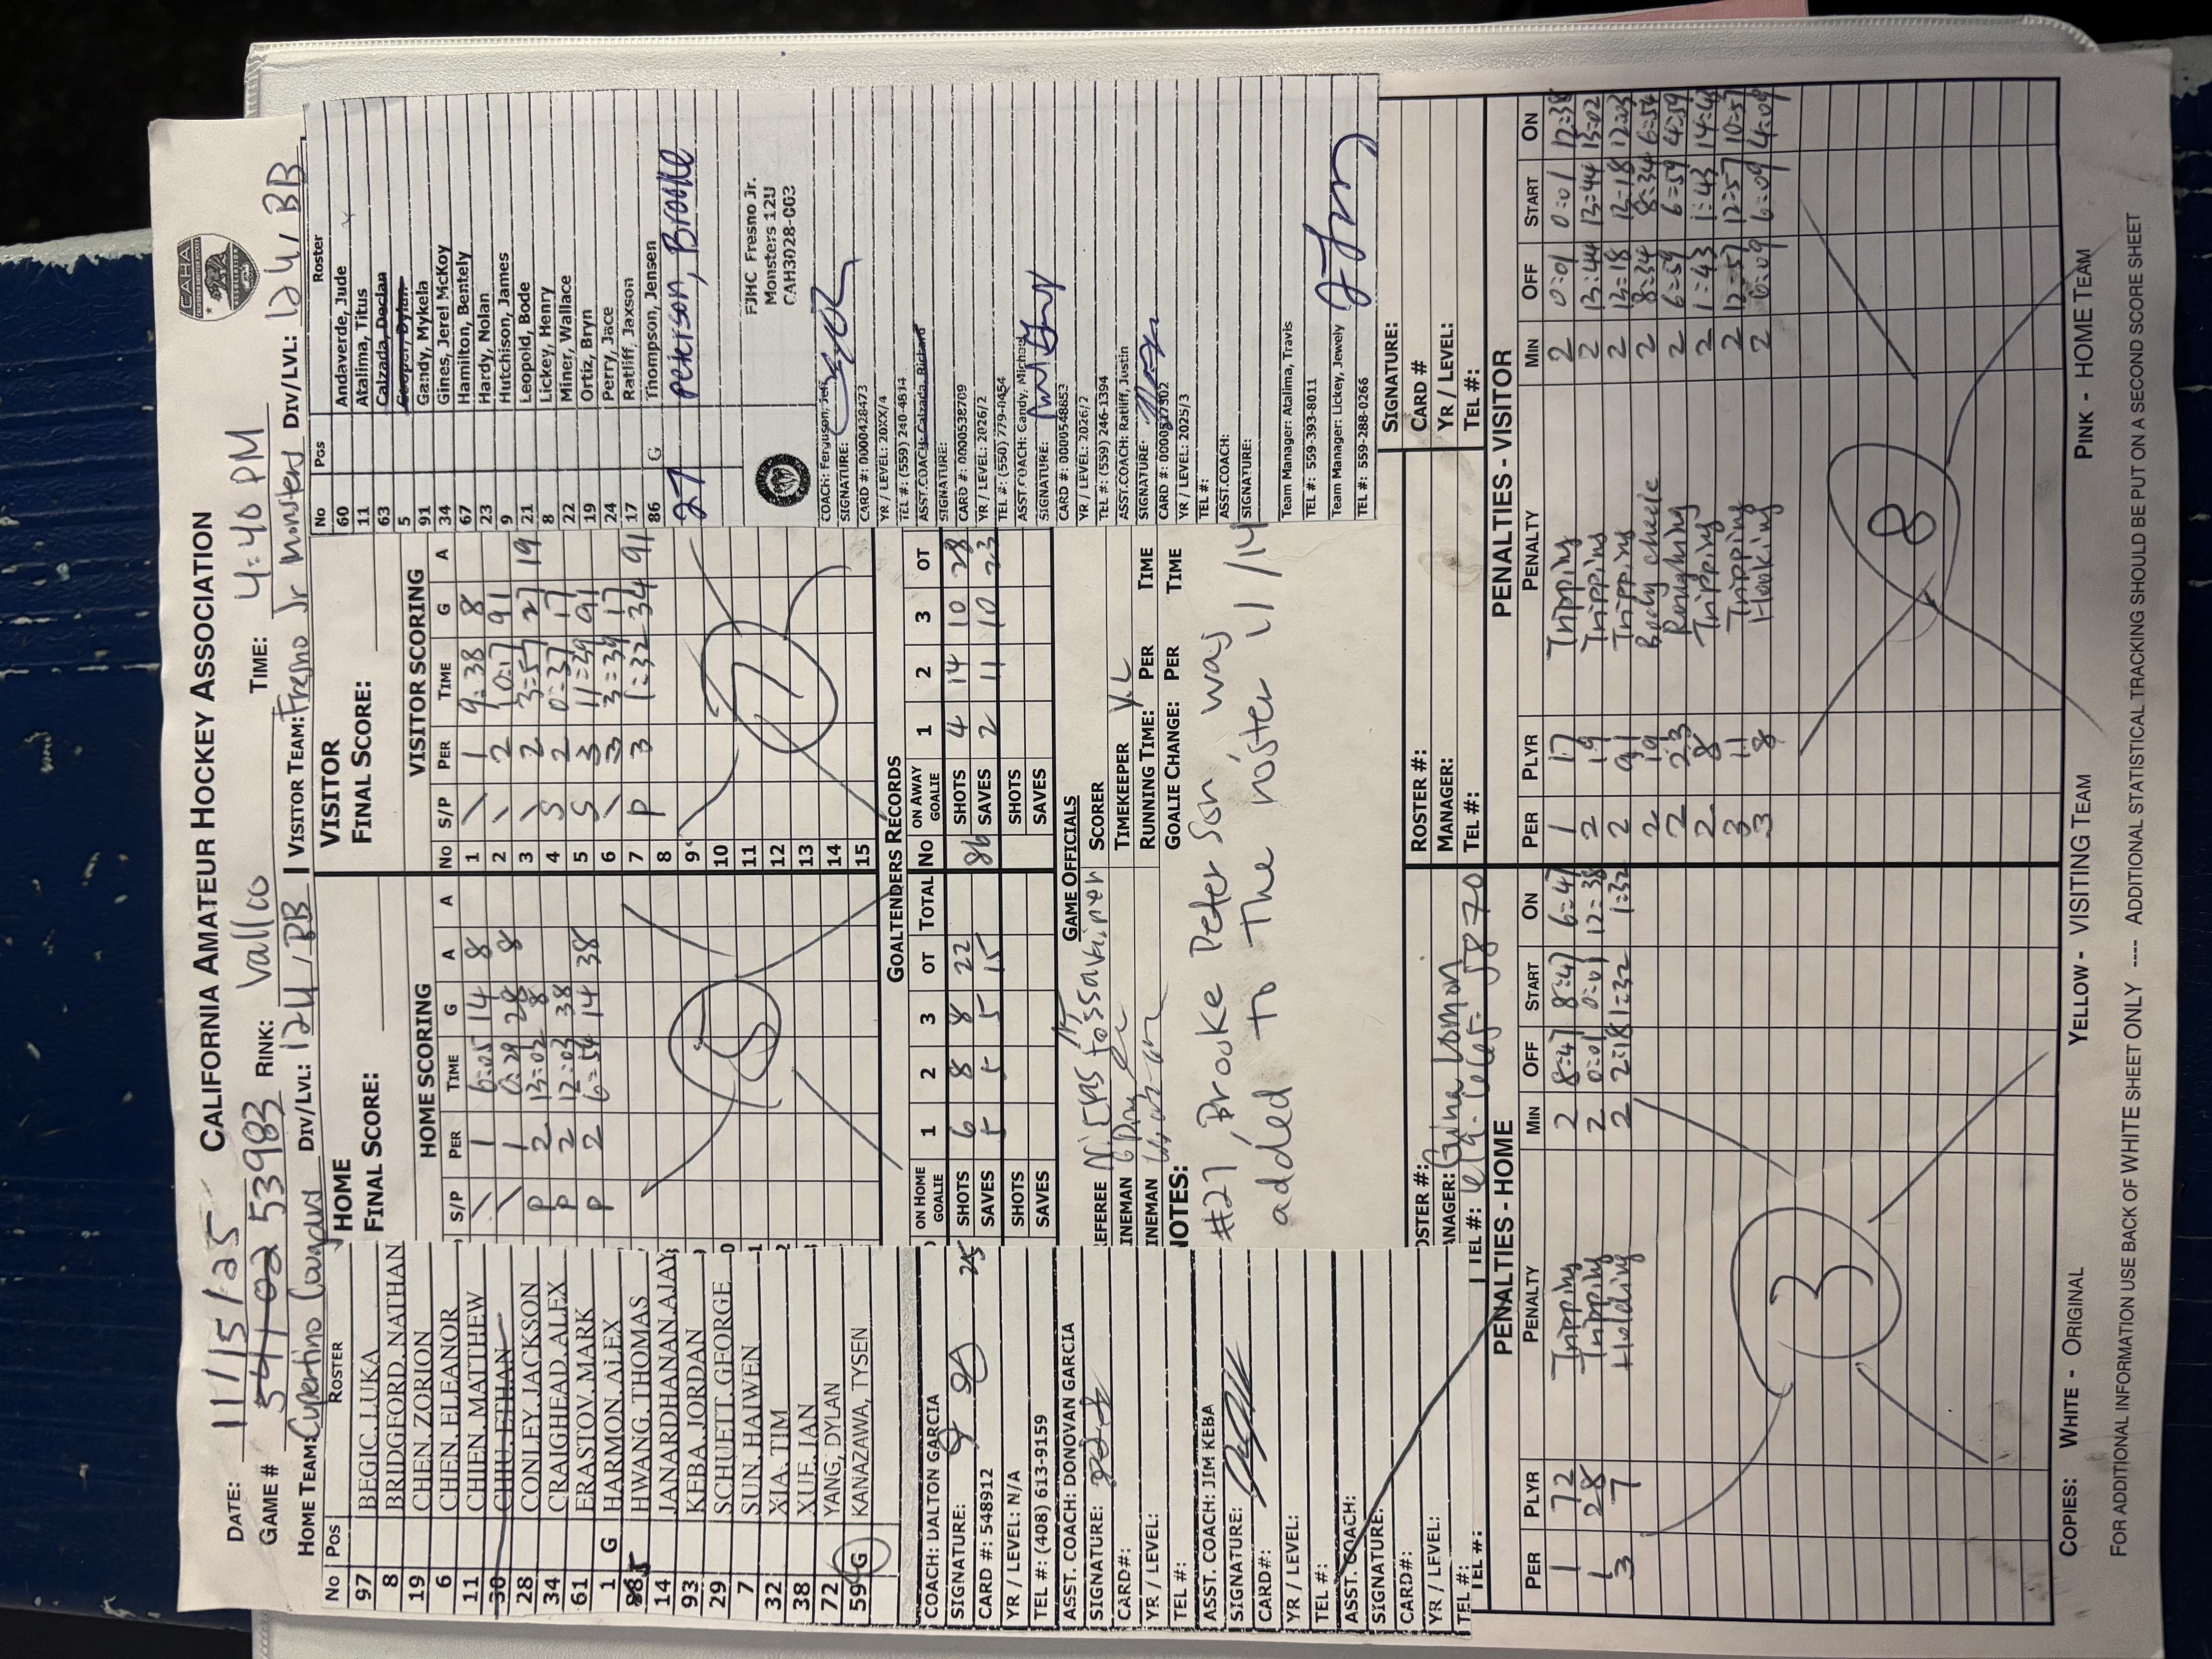 CALIFORNIA AMATEUR HOCKEY ASSOCIATION
CAHA
DATE: 11/15/25
GAME # 54102 53983 RINK: Vallco TIME: 4:40 PM
HOME TEAM: Cupertino Cougars DIV/LVL: 12U, BB VISITOR TEAM: Fresno Jr Monsters DIV/LVL: 12U, BB
No Pos ROSTER
97 BEGIC, LUKA
8 BRIDGFORD, NATHAN
19 CHEN, ZORION
6 CHEN, ELEANOR
11 CHIEN, MATTHEW
30 CHIU, ETHAN
28 CONLEY, JACKSON
34 CRAIGHEAD, ALEX
61 ERASTOV, MARK
1 G HARMON, ALEX
HWANG, THOMAS
14 JANARDHANAN, AJAY
93 KEBA, JORDAN
29 SCHUETT, GEORGE
7 SUN, HAIWEN
32 XIA, TIM
38 XUE, IAN
72 YANG, DYLAN
59 G KANAZAWA, TYSEN
COACH: DALTON GARCIA
SIGNATURE:
CARD #: 548912
YR / LEVEL: N/A
TEL #: (408) 613-9159
ASST. COACH: DONOVAN GARCIA
SIGNATURE:
CARD#:
YR / LEVEL:
TEL #:
ASST. COACH: JIM KEBA
SIGNATURE:
CARD#:
YR / LEVEL:
TEL #:
ASST. COACH:
SIGNATURE:
CARD#:
YR / LEVEL:
TEL #:
TEL #:
HOME
FINAL SCORE:
HOME SCORING
S/P PER TIME G A A
\ 1 6:05 14 8
\ 1 0:29 28 8
P 2 13:02 8
P 2 12:03 38
P 2 6:54 14 38
5
VISITOR
FINAL SCORE:
VISITOR SCORING
No S/P PER TIME G A
1 \ 1 9:38 8
2 \ 2 10:17 91
3 \ 2 3:57 27 19
4 S 2 0:37 17
5 S 3 11:59 91
6 \ 3 3:39 17
7 P 3 1:32 34 91
8
9
10
11
12
13
14
15
7
GOALTENDERS RECORDS
ON HOME GOALIE 1 2 3 OT TOTAL No ON AWAY GOALIE 1 2 3 OT
25 SHOTS 6 8 8 22 86 SHOTS 4 14 10 28
SAVES 5 5 5 15 SAVES 2 11 10 23
SHOTS SHOTS
SAVES SAVES
GAME OFFICIALS
REFEREE SCORER
LINEMAN TIMEKEEPER Y.L
LINEMAN RUNNING TIME: PER TIME
NOTES: GOALIE CHANGE: PER TIME
#27, Brooke Peterson was
added to the roster 11/14
No Pos Roster
60 Andaverde, Jude
11 Atalima, Titus
63 Calzada, Declan
5 Cooper, Dylan
91 Gandy, Mykela
34 Gines, Jerel McKoy
67 Hamilton, Bentely
23 Hardy, Nolan
9 Hutchison, James
21 Leopold, Bode
8 Lickey, Henry
22 Miner, Wallace
19 Ortiz, Bryn
24 Perry, Jace
17 Ratliff, Jaxson
86 G Thompson, Jensen
27 Peterson, Brooke
FJHC Fresno Jr.
Monsters 12U
CAH3028-003
COACH: Ferguson, Jeff
SIGNATURE:
CARD #: 0000428473
YR / LEVEL: 20XX/4
TEL #: (559) 240-4814
ASST.COACH: Calzada, Richard
SIGNATURE:
CARD #: 0000538709
YR / LEVEL: 2026/2
TEL #: (550) 779-0454
ASST.COACH: Gandy, Michael
SIGNATURE:
CARD #: 0000548853
YR / LEVEL: 2026/2
TEL #: (559) 246-1394
ASST.COACH: Ratliff, Justin
SIGNATURE:
CARD #: 0000527502
YR / LEVEL: 2025/3
TEL #:
ASST.COACH:
SIGNATURE:
Team Manager: Atalima, Travis
TEL #: 559-393-8011
Team Manager: Lickey, Jewely
TEL #: 559-288-0266
ROSTER #: ROSTER #: SIGNATURE:
MANAGER: Gwina Lomon MANAGER: CARD #
TEL #: TEL #: YR / LEVEL:
TEL #:
PENALTIES - HOME
PER PLYR PENALTY MIN OFF START ON
1 72 Tripping 2 8:47 8:47 6:47
1 28 Tripping 2 0:01 0:01 12:38
3 7 Holding 2 2:18 1:32 1:32
3
PENALTIES - VISITOR
PER PLYR PENALTY MIN OFF START ON
1 17 Tripping 2 0:01 0:01 12:38
2 19 Tripping 2 13:44 13:44 13:02
2 91 Tripping 2 13:18 13:18 12:03
2 19 Body check 2 8:34 8:34 6:54
2 23 Roughing 2 6:59 6:59 4:59
2 8 Tripping 2 1:43 1:43 14:43
3 11 Tripping 2 12:57 12:57 10:57
3 8 Hooking 2 6:09 6:09 4:09
8
COPIES: WHITE - ORIGINAL YELLOW - VISITING TEAM PINK - HOME TEAM
FOR ADDITIONAL INFORMATION USE BACK OF WHITE SHEET ONLY ---- ADDITIONAL STATISTICAL TRACKING SHOULD BE PUT ON A SECOND SCORE SHEET